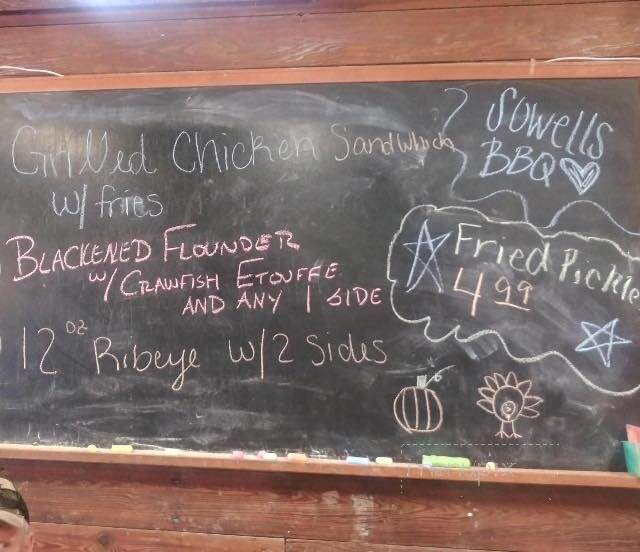 Grilled Chicken Sandwhich
w/ fries
BLACKENED FLOUNDER
w/ CRAWFISH ETOUFFE
AND ANY 1 SIDE
12 oz Ribeye w/2 Sides
Sowells
BBQ
Fried Pickle
4 99